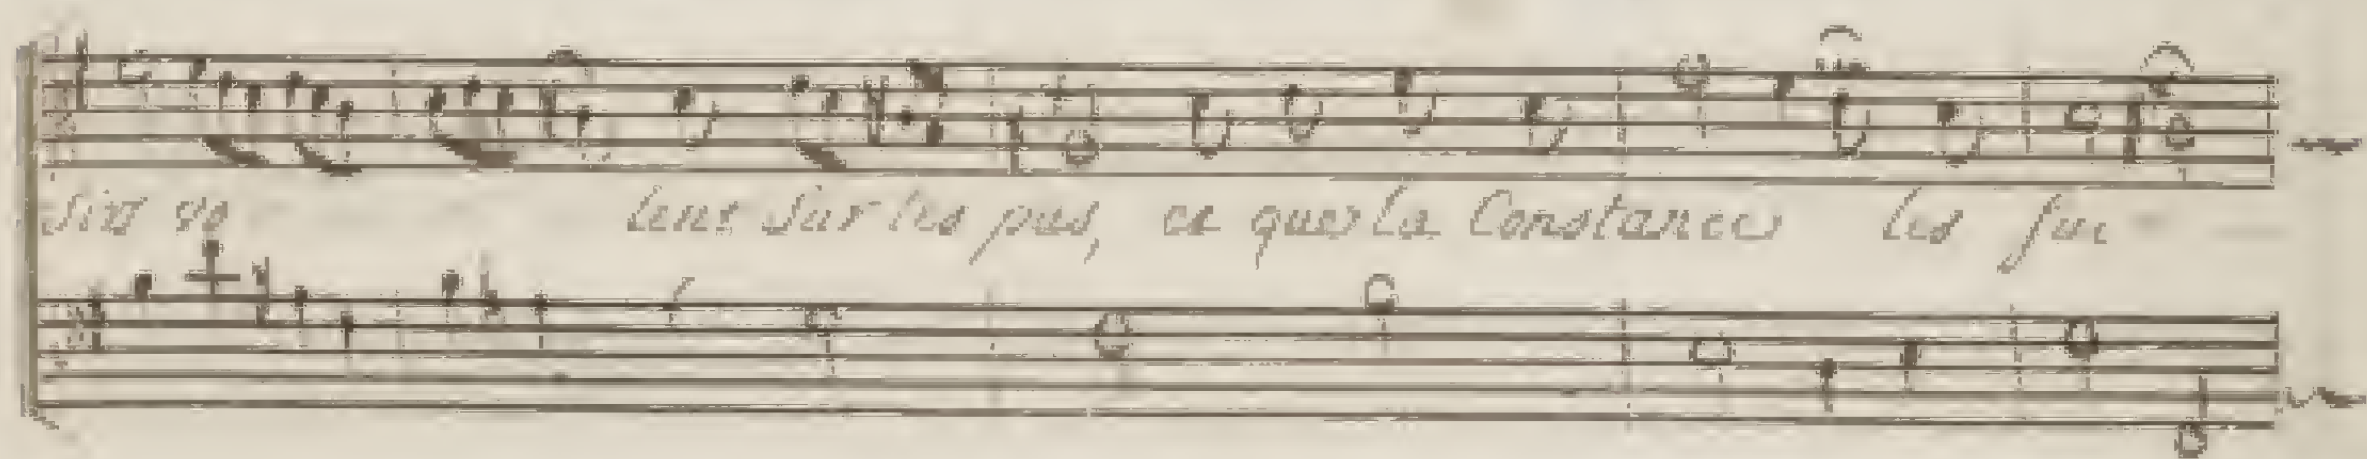 sirs vo lent sur tes pas, et que la Constance les sui